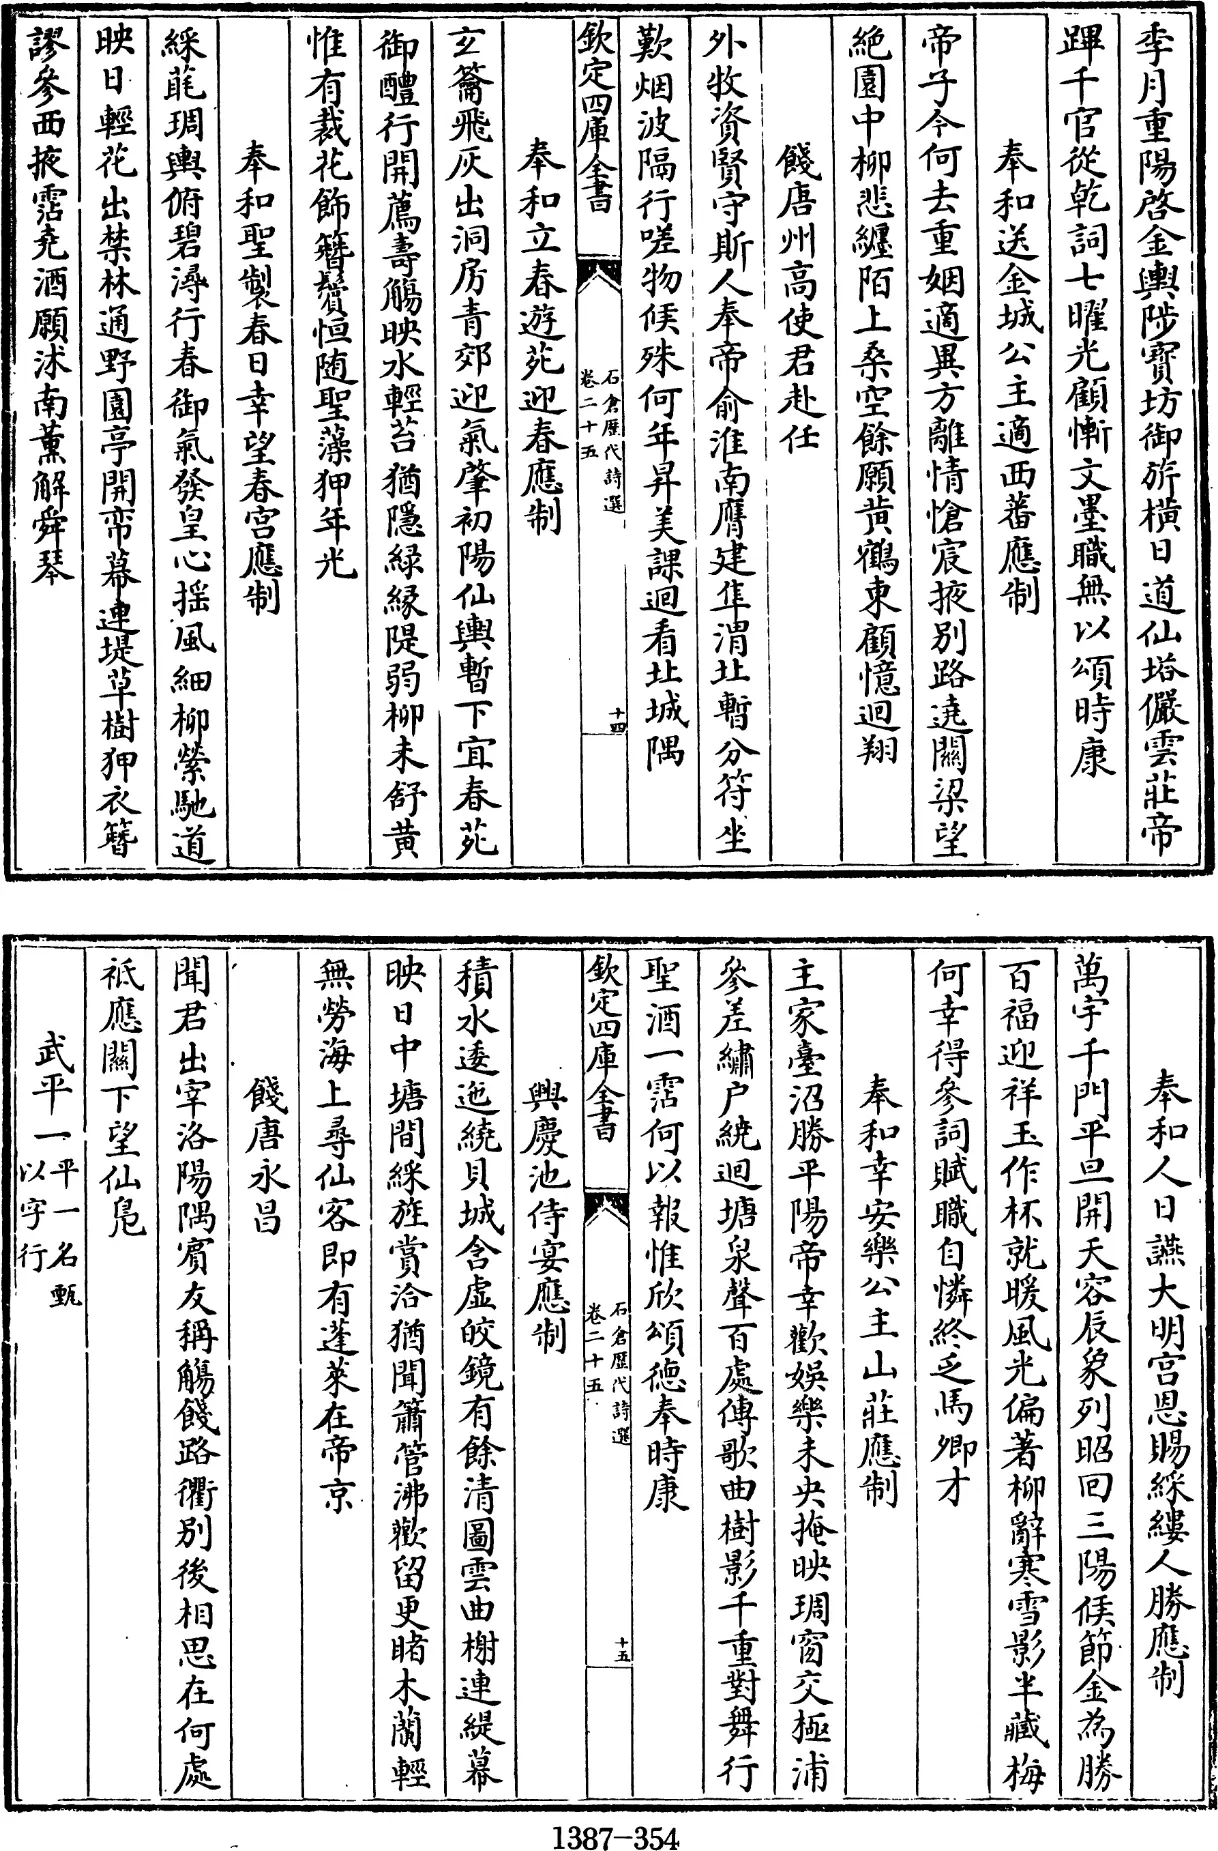 季月重陽啓金輿陟寶坊御旂横日道仙塔儼雲莊帝
蹕千官從乾詞七曜光顧慚文墨職無以頌時康
奉和送金城公主適西蕃應制
帝子今何去重姻適異方離情愴宸掖别路遶關梁望
絶園中柳悲纒陌上桑空餘願黄鶴東顧憶迴翔
餞唐州高使君赴任
外牧資賢守斯人奉帝俞淮南膺建隼渭北暫分符坐
歎烟波隔行嗟物候殊何年昇美課迴看北城隅
欽定四庫全書
石倉歷代詩選
卷二十五
十四
奉和立春遊苑迎春應制
玄籥飛灰出洞房青郊迎氣肇初陽仙輿暫下宜春苑
御醴行開薦壽觴映水輕苔猶隱緑縁隄弱柳未舒黄
惟有裁花飾簪鬢恒随聖藻狎年光
奉和聖製春日幸望春宫應制
綵蒓琱輿俯碧潯行春御氣發皇心揺風細柳縈馳道
映日輕花出禁林通野園亭開帟幕連堤草樹狎衣簪
謬參西掖霑堯酒願沭南薰解舜琴
奉和人日讌大明宫恩賜綵縷人勝應制
萬宇千門平旦開天容辰象列昭回三陽候節金為勝
百福迎祥玉作杯就暖風光偏著柳辭寒雪影半藏梅
何幸得參詞賦職自憐終乏馬卿才
奉和幸安樂公主山莊應制
主家臺沼勝平陽帝幸歡娛樂未央掩映琱窗交極浦
參差繡户繞迴塘泉聲百處傳歌曲樹影千重對舞行
聖酒一霑何以報惟欣頌德奉時康
欽定四庫全書
石倉歷代詩選
卷二十五
十五
興慶池侍宴應制
積水逶迤繞貝城含虚皎鏡有餘清圖雲曲榭連緹幕
映日中塘間綵旌賞洽猶聞簫管沸歡留更睹木蘭輕
無勞海上尋仙客即有蓬萊在帝京
餞唐永昌
聞君出宰洛陽隅賓友稱觴餞路衢别後相思在何處
祇應關下望仙鳧
武平一平一名甄
以字行
1387-354